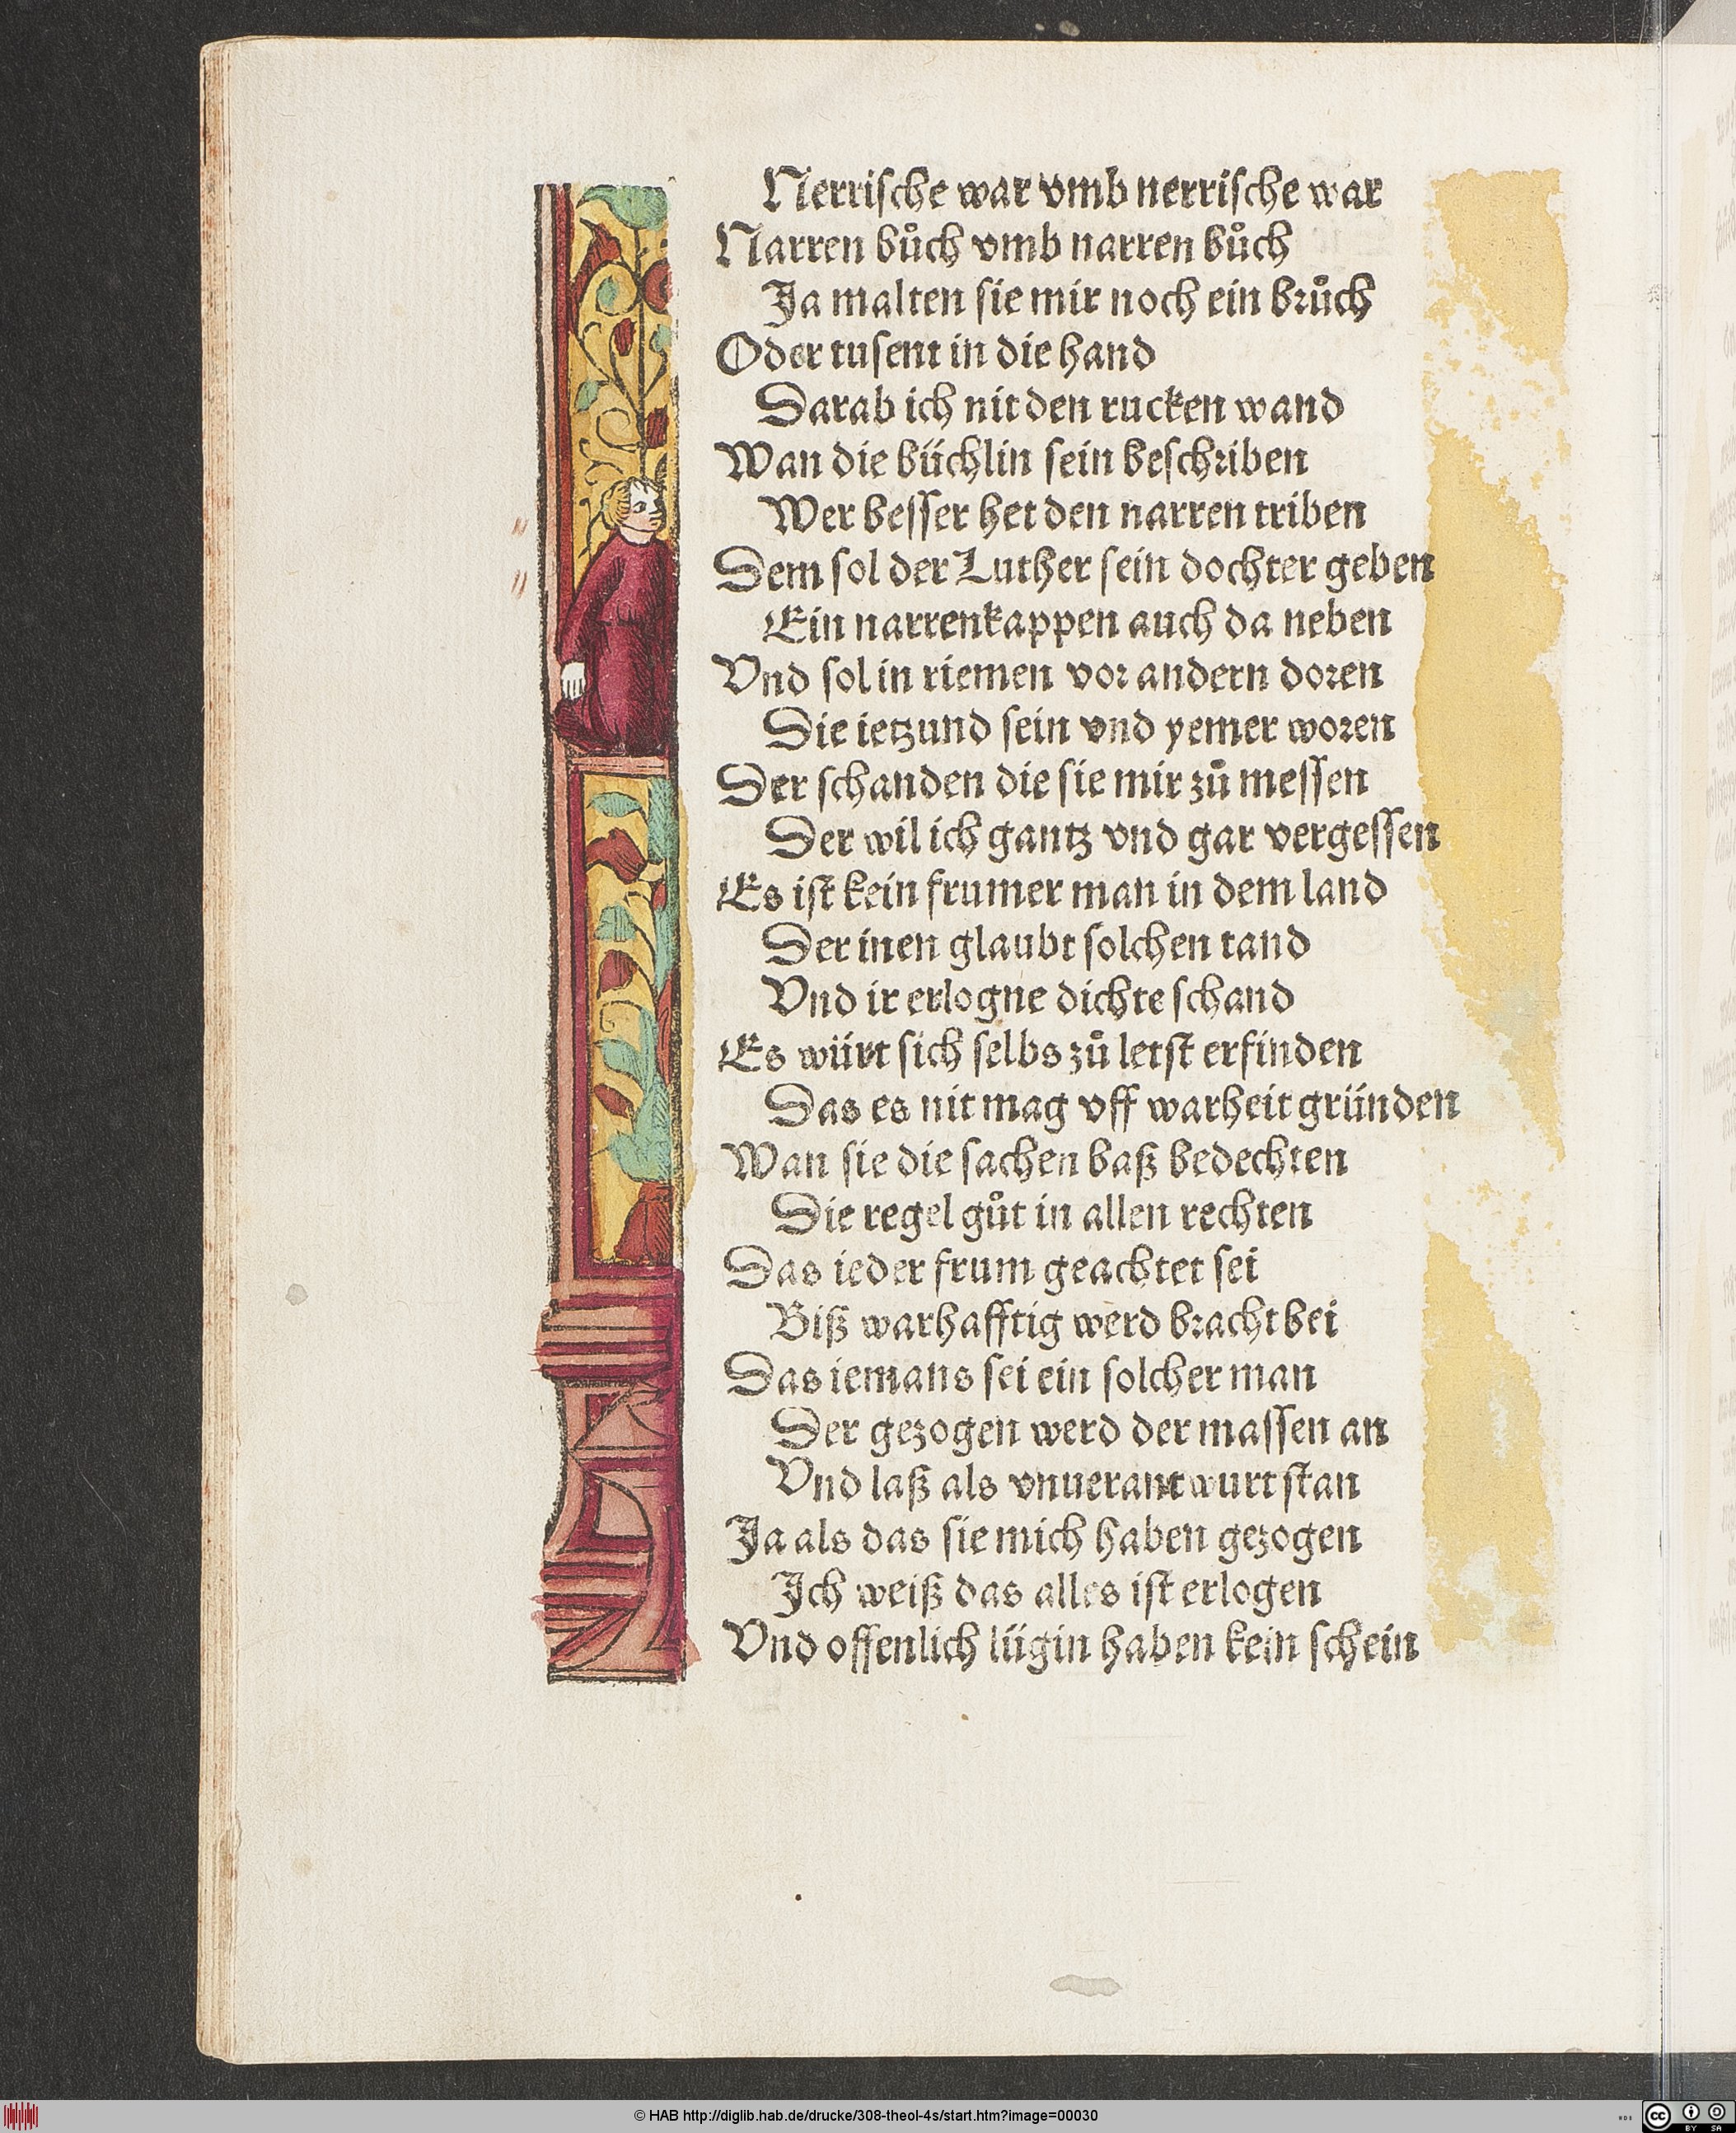 Nerrische war vmb nerrische war
Narren bůch vmb narren bůch
Ja malten sie mir noch ein brůch
Oder tusent in die hand
Darab ich nit den rucken wand
Wan die büchlin sein beschriben
Wer besser het den narren triben
Dem sol der Luther sein dochter geben
Ein narrenkappen auch da neben
Vnd sol in riemen vor andern doren
Die ietzund sein vnd yemer woren
Der schanden die sie mir zů messen
Der wil ich gantz vnd gar vergessen
Es ist kein frumer man in dem land
Der inen glaubt solchen tand
Vnd ir erlogne dichte schand
Es würt sich selbs zů letst erfinden
Das es nit mag vff warheit gründen
Wan sie die sachen baß bedechten
Die regel gůt in allen rechten
Das ieder frum geachtet sei
Biß warhafftig werd bracht bei
Das iemans sei ein solcher man
Der gezogen werd der massen an
Vnd laß als vnuerantwurt stan
Ja als das sie mich haben gezogen
Ich weiß das alles ist erlogen
Vnd offenlich lügin haben kein schein
© HAB http://diglib.hab.de/drucke/308-theol-4s/start.htm?image=00030
cc BY SA